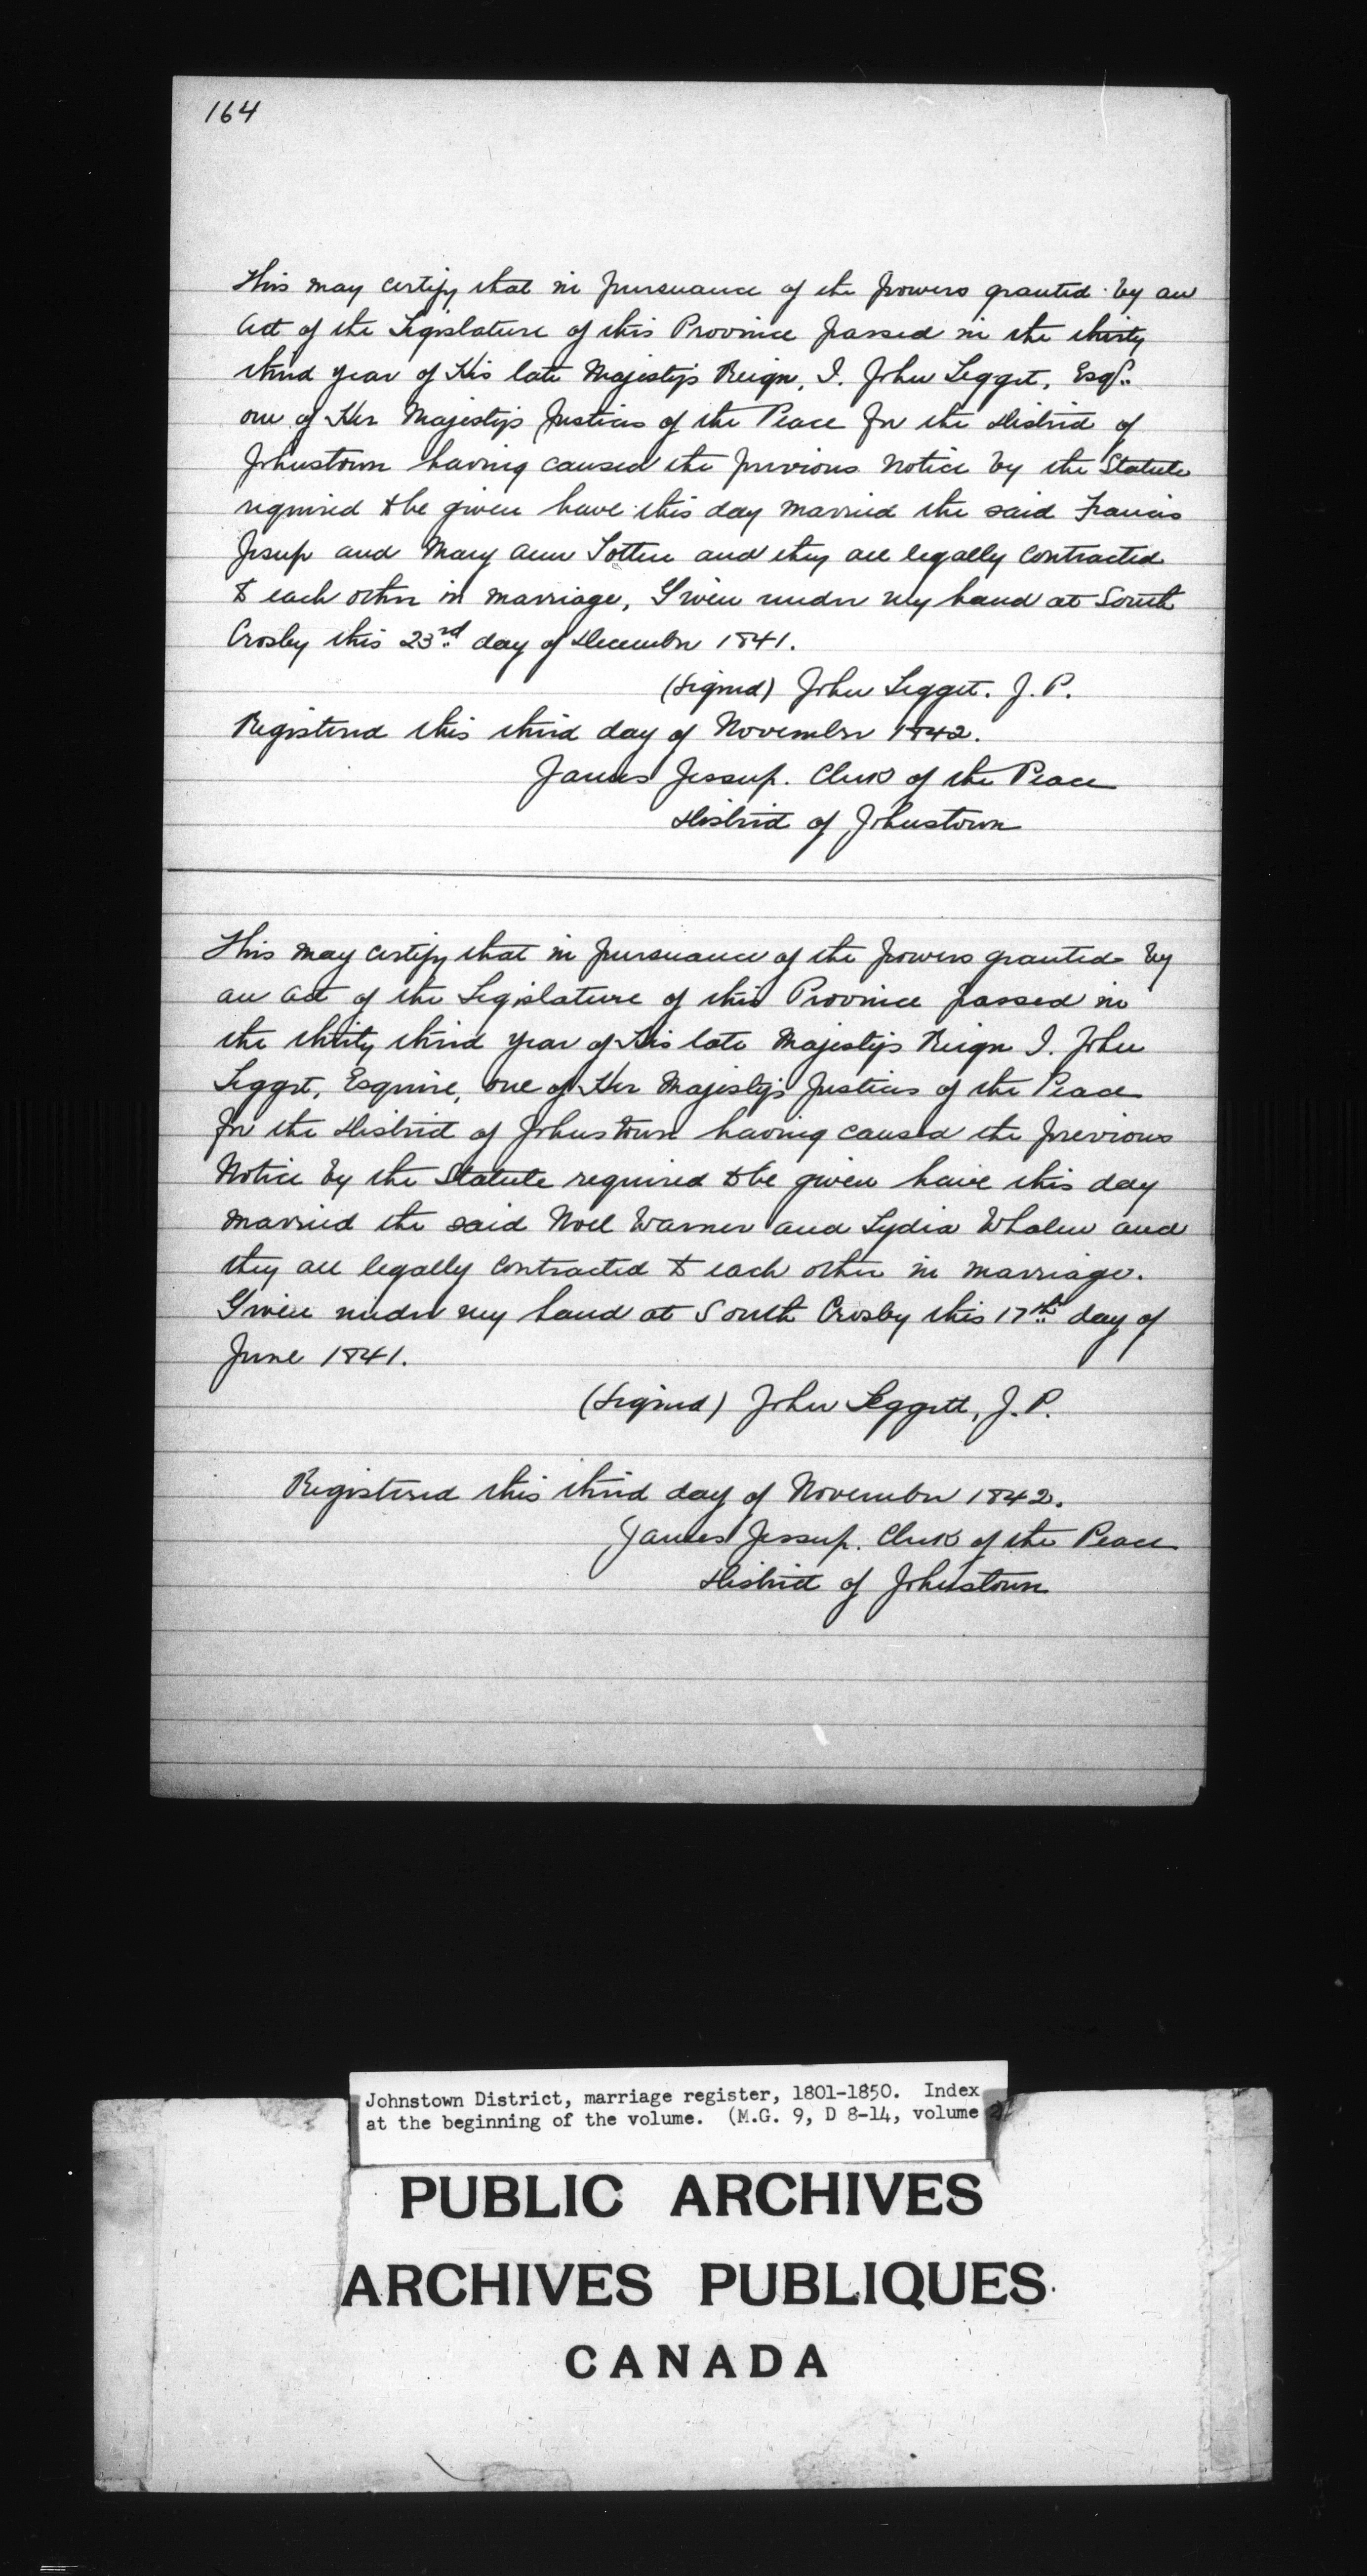 164
This may certify that in pursuance of the powers granted by an
Act of the Legislature of this Province passed in the thirty
third year of His late Majesty's Reign, I. John Legget, Esqr.
one of Her Majesty's Justices of the Peace for the District of
Johnstown having caused the previous notice by the Statute
required to be given have this day married the said Francis
Jesup and Mary Ann Totten and they are legally contracted
to each other in marriage, Given under my hand at South
Crosby this 23rd day of December 1841.
(Signed) John Legget. J. P.
Registered this third day of November 1842.
James Jessup. Clerk of the Peace
District of Johnstown
This may certify that in pursuance of the powers granted by
an Act of the Legislature of this Province passed in
the thirty third year of His late Majesty's Reign I. John
Legget, Esquire, one of Her Majesty's Justices of the Peace
for the District of Johnstown having caused the previous
Notice by the Statute required to be given have this day
married the said Noel Warner and Lydia Whalen and
they are legally contracted to each other in marriage.
Given under my hand at South Crosby this 17th day of
June 1841.
(Signed) John Leggett, J. P.
Registered this third day of November 1842.
James Jessup. Clerk of the Peace
District of Johnstown
Johnstown District, marriage register, 1801-1850. Index
at the beginning of the volume. (M.G. 9, D 8-14, volume
PUBLIC ARCHIVES
ARCHIVES PUBLIQUES
CANADA